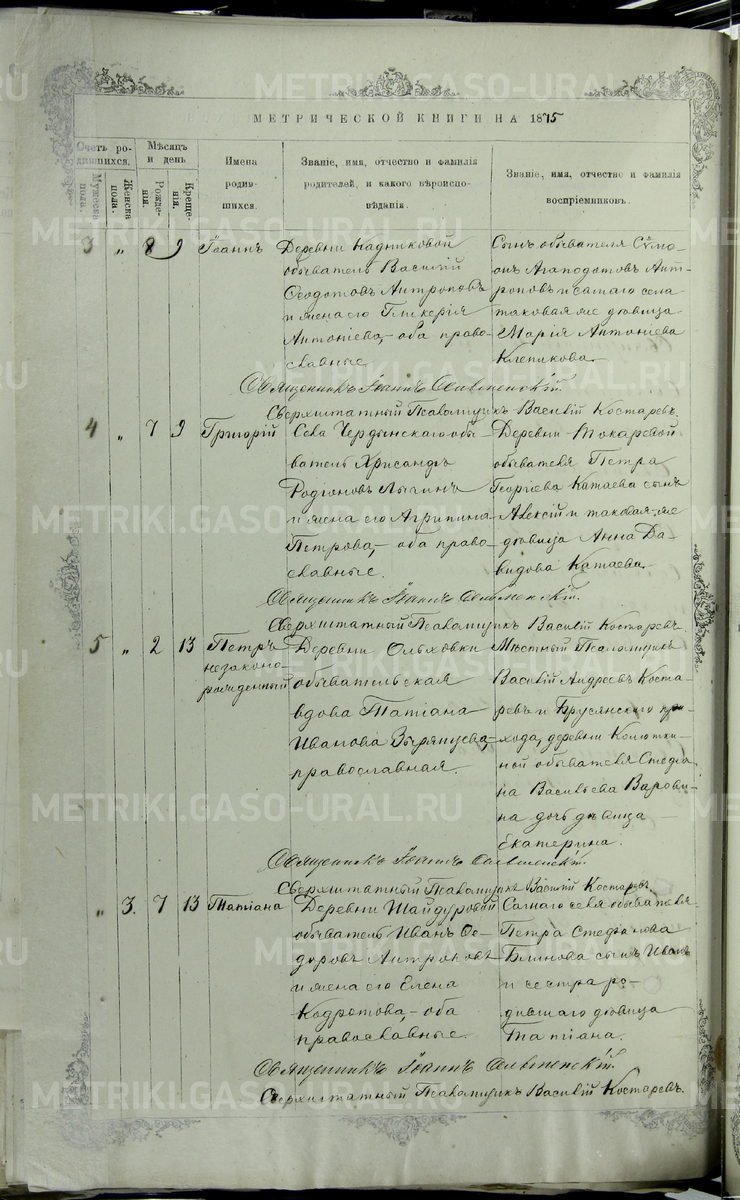 МЕТРИЧЕСКОЙ КНИГИ НА 1875
Счетъ родившихся.
Мужеска пола.
Женска пола.
Мѣсяцъ и день
Рожденія.
Крещенія.
Имена родившихся.
Званіе, имя, отчество и фамилія
родителей, и какого вѣроиспо-
вѣданія.
Званіе, имя, отчество и фамилія
воспріемниковъ.
3 „ 8 9 Іоаннъ
Деревни Кадниковой
обыватель Василій
Ѳеодотовъ Антроповъ
и жена его Гликерія
Антоніева, оба право-
славные
Сынъ обывателя
Агаподотовъ Ант-
роповъ и самаго села
таковая же дѣвица
Марія Антоніева
Клепикова
Священникъ Іоаннъ
Сверхштатный Псаломщикъ Василій Костаревъ.
4 „ 7 9 Григорій
Села Чердынскаго обы-
ватель Хрисанфъ
Родіоновъ Лычинъ
и жена его Агрипина
Петрова, оба право-
славные.
Деревни Токаревой
обывателя Петра
Георгіева Катаева сынъ
Алексій и таковая-же
дѣвица Анна Да-
видова Катаева
Священникъ Іоаннъ
Сверхштатный Псаломщикъ Василій Костаревъ
5 „ 2 13 Петръ
незаконо-
рожденный
Деревни Ольховки
обывательская
вдова Татіана
Иванова Зырянцева,
православная.
Мѣстный Псаломщикъ
Василій Андреевъ Коста-
ревъ и Брусянского при-
хода, деревни Колютки-
ной обывателя Стефа-
на Васильева Варови-
на дочь дѣвица
Екатерина.
Священникъ Іоаннъ
Сверхштатный Псаломщикъ Василій Костаревъ.
„ 3. 7 13 Татіана
Деревни Шайдуровой
обыватель Иванъ Ѳе-
доровъ Антроповъ
и жена его Елена
Кодротова, оба
православные.
Самаго села обывателя
Петра Стефанова
Блинова сынъ Иванъ
и сестра ро-
дившаго дѣвица
Татіана.
Священникъ Іоаннъ
Сверхштатный Псаломщикъ Василій Костаревъ.
METRIKI.GASO-URAL.RU